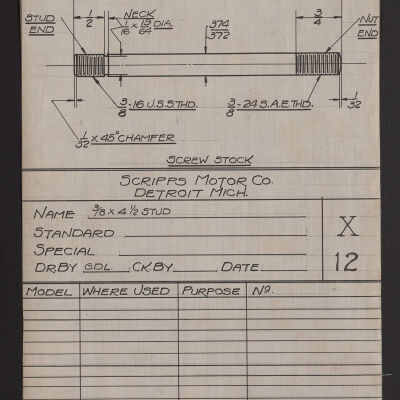 1/2
3/4
STUD END
NECK
1/16 x 19/64 DIA.
.374
.372
NUT END
3/8-16 U.S.S. THD.
3/8-24 S.A.E. THD.
1/32
1/32 x 45° CHAMFER
SCREW STOCK
SCRIPPS MOTOR CO.
DETROIT MICH.
NAME 3/8 x 4 1/2 STUD
STANDARD
SPECIAL
DR.BY G.D.L. CK.BY DATE
X
12
MODEL WHERE USED PURPOSE NO.